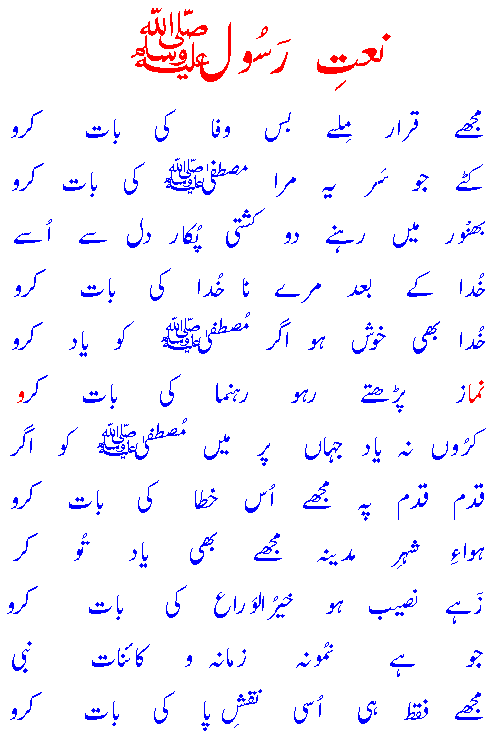 نعتِ رَسُول ﷺ
مجھے قرار مِلے بس وفا کی بات کرو
کٹے جو سَر یہ مرا مصطفیٰ ﷺ کی بات کرو
بھنْور میں رہنے دو کشتی پُکار دل سے اُسے
خُدا کے بعد مرے نا خُدا کی بات کرو
خُدا بھی خوش ہو اگر مُصطفیٰ ﷺ کو یاد کرو
نماز پڑھتے رہو رہنما کی بات کرو
کرُوں نہ یاد جہاں پر میں مُصطفیٰ ﷺ کو اگر
قدم قدم پہ مجھے اُس خطا کی بات کرو
ہواءِ شہرِ مدینہ مجھے بھی یاد تُو کر
زَہے نصیب ہو خیرُ الوَراع کی بات کرو
جو ہے نمُونہ زمانہ و کائنات نبی
مجھے فقط ہی اُسی نقشِ پا کی بات کرو